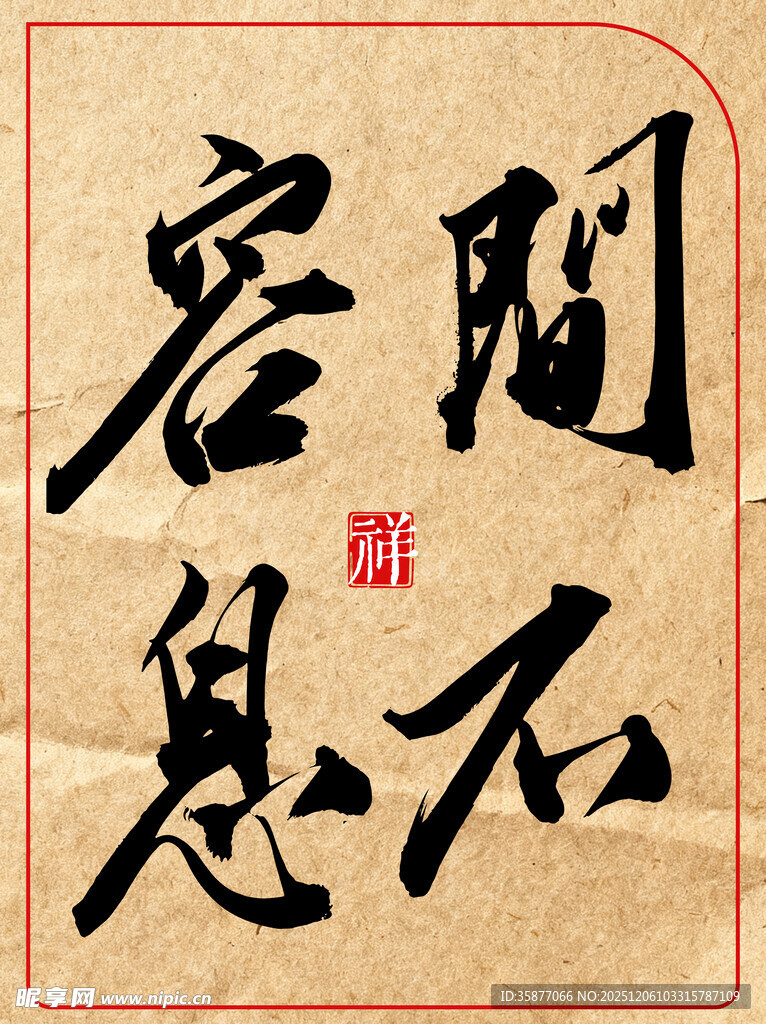 間不
容息
祥
昵享网 www.nipic.cn
ID:35877066 NO:20251206103315787109